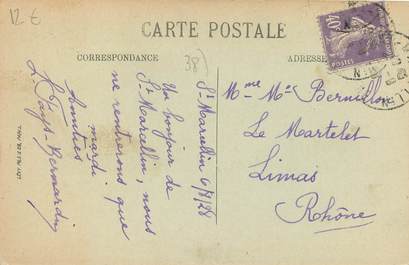 12 €
CARTE POSTALE
CORRESPONDANCE
ADRESSE
38)
40c
St Marcellin 6/8/28
Un bonjour de
St Marcellin, nous
ne rentrerons que
mardi
Amitiés
Mme Mce
Le Martelet
Limas
Rhône